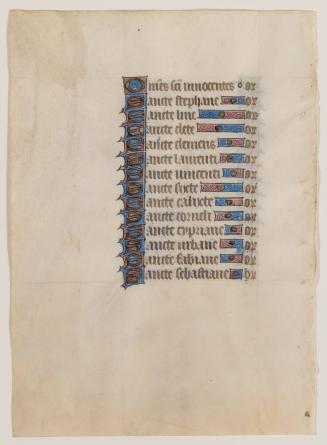 Omes sci innocentes or
Sancte stephane or
Sancte line or
Sancte clete or
Sancte clemens or
Sancte laurenti or
Sancte vincenti or
Sancte sixte or
Sancte calixte or
Sancte corneli or
Sancte cypriane or
Sancte urbane or
Sancte fabiane or
Sancte sebastiane or